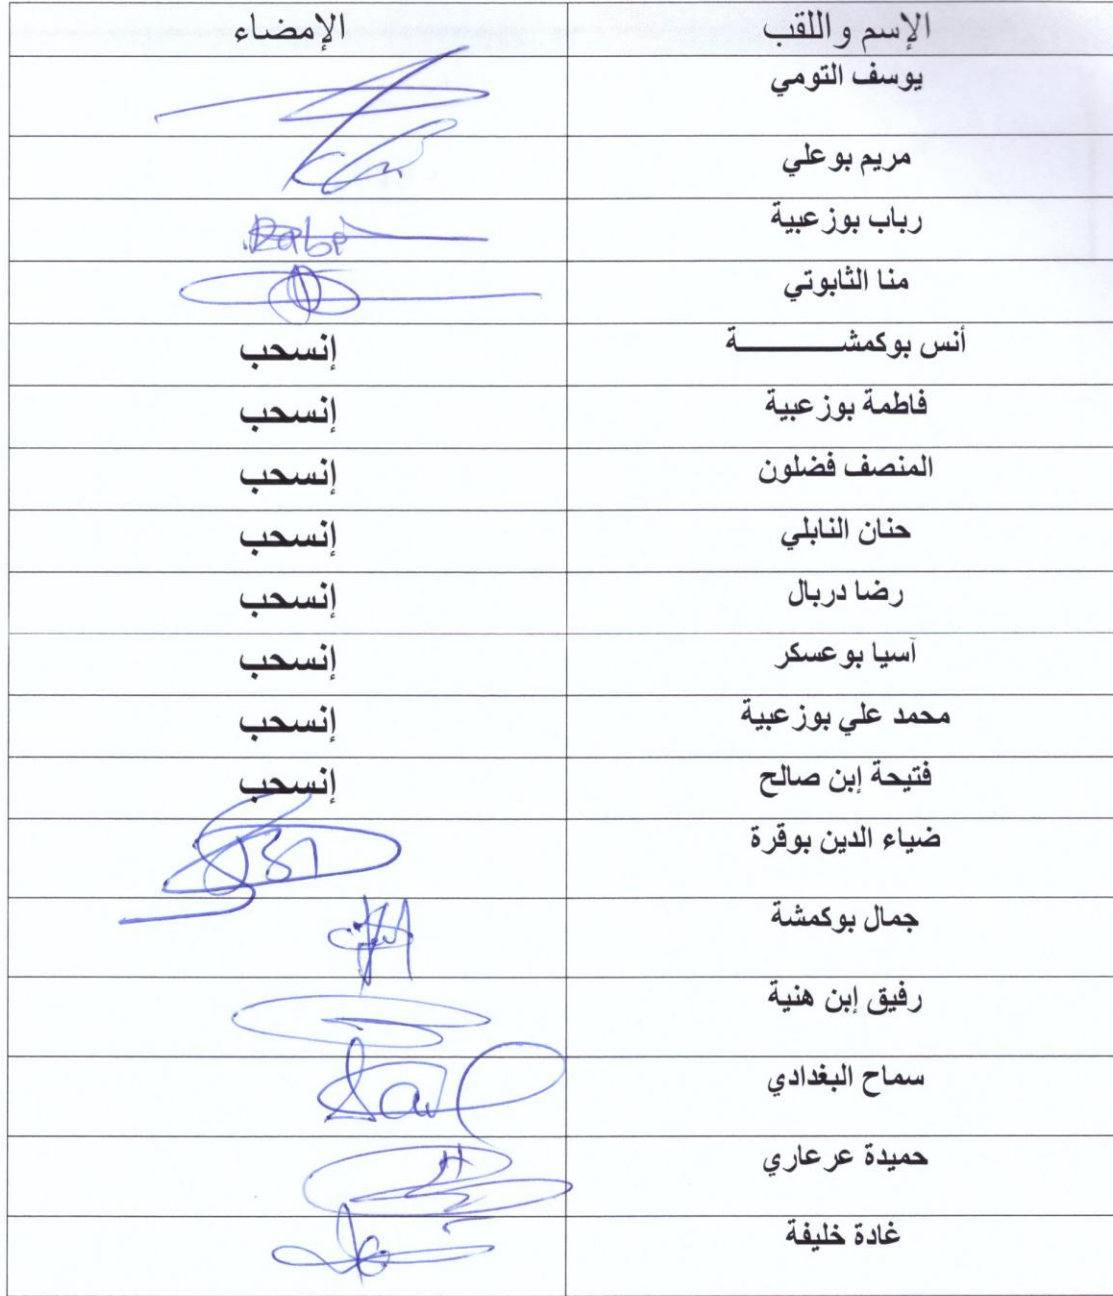 الإسم واللقب الإمضاء
يوسف التومي
مريم بوعلي
رباب بوزعبية
منا الثابوتي
أنس بوكمشــــــــــة إنسحب
فاطمة بوزعبية إنسحب
المنصف فضلون إنسحب
حنان النابلي إنسحب
رضا دربال إنسحب
آسيا بوعسكر إنسحب
محمد علي بوزعبية إنسحب
فتيحة إبن صالح إنسحب
ضياء الدين بوقرة
جمال بوكمشة
رفيق إبن هنية
سماح البغدادي
حميدة عرعاري
غادة خليفة